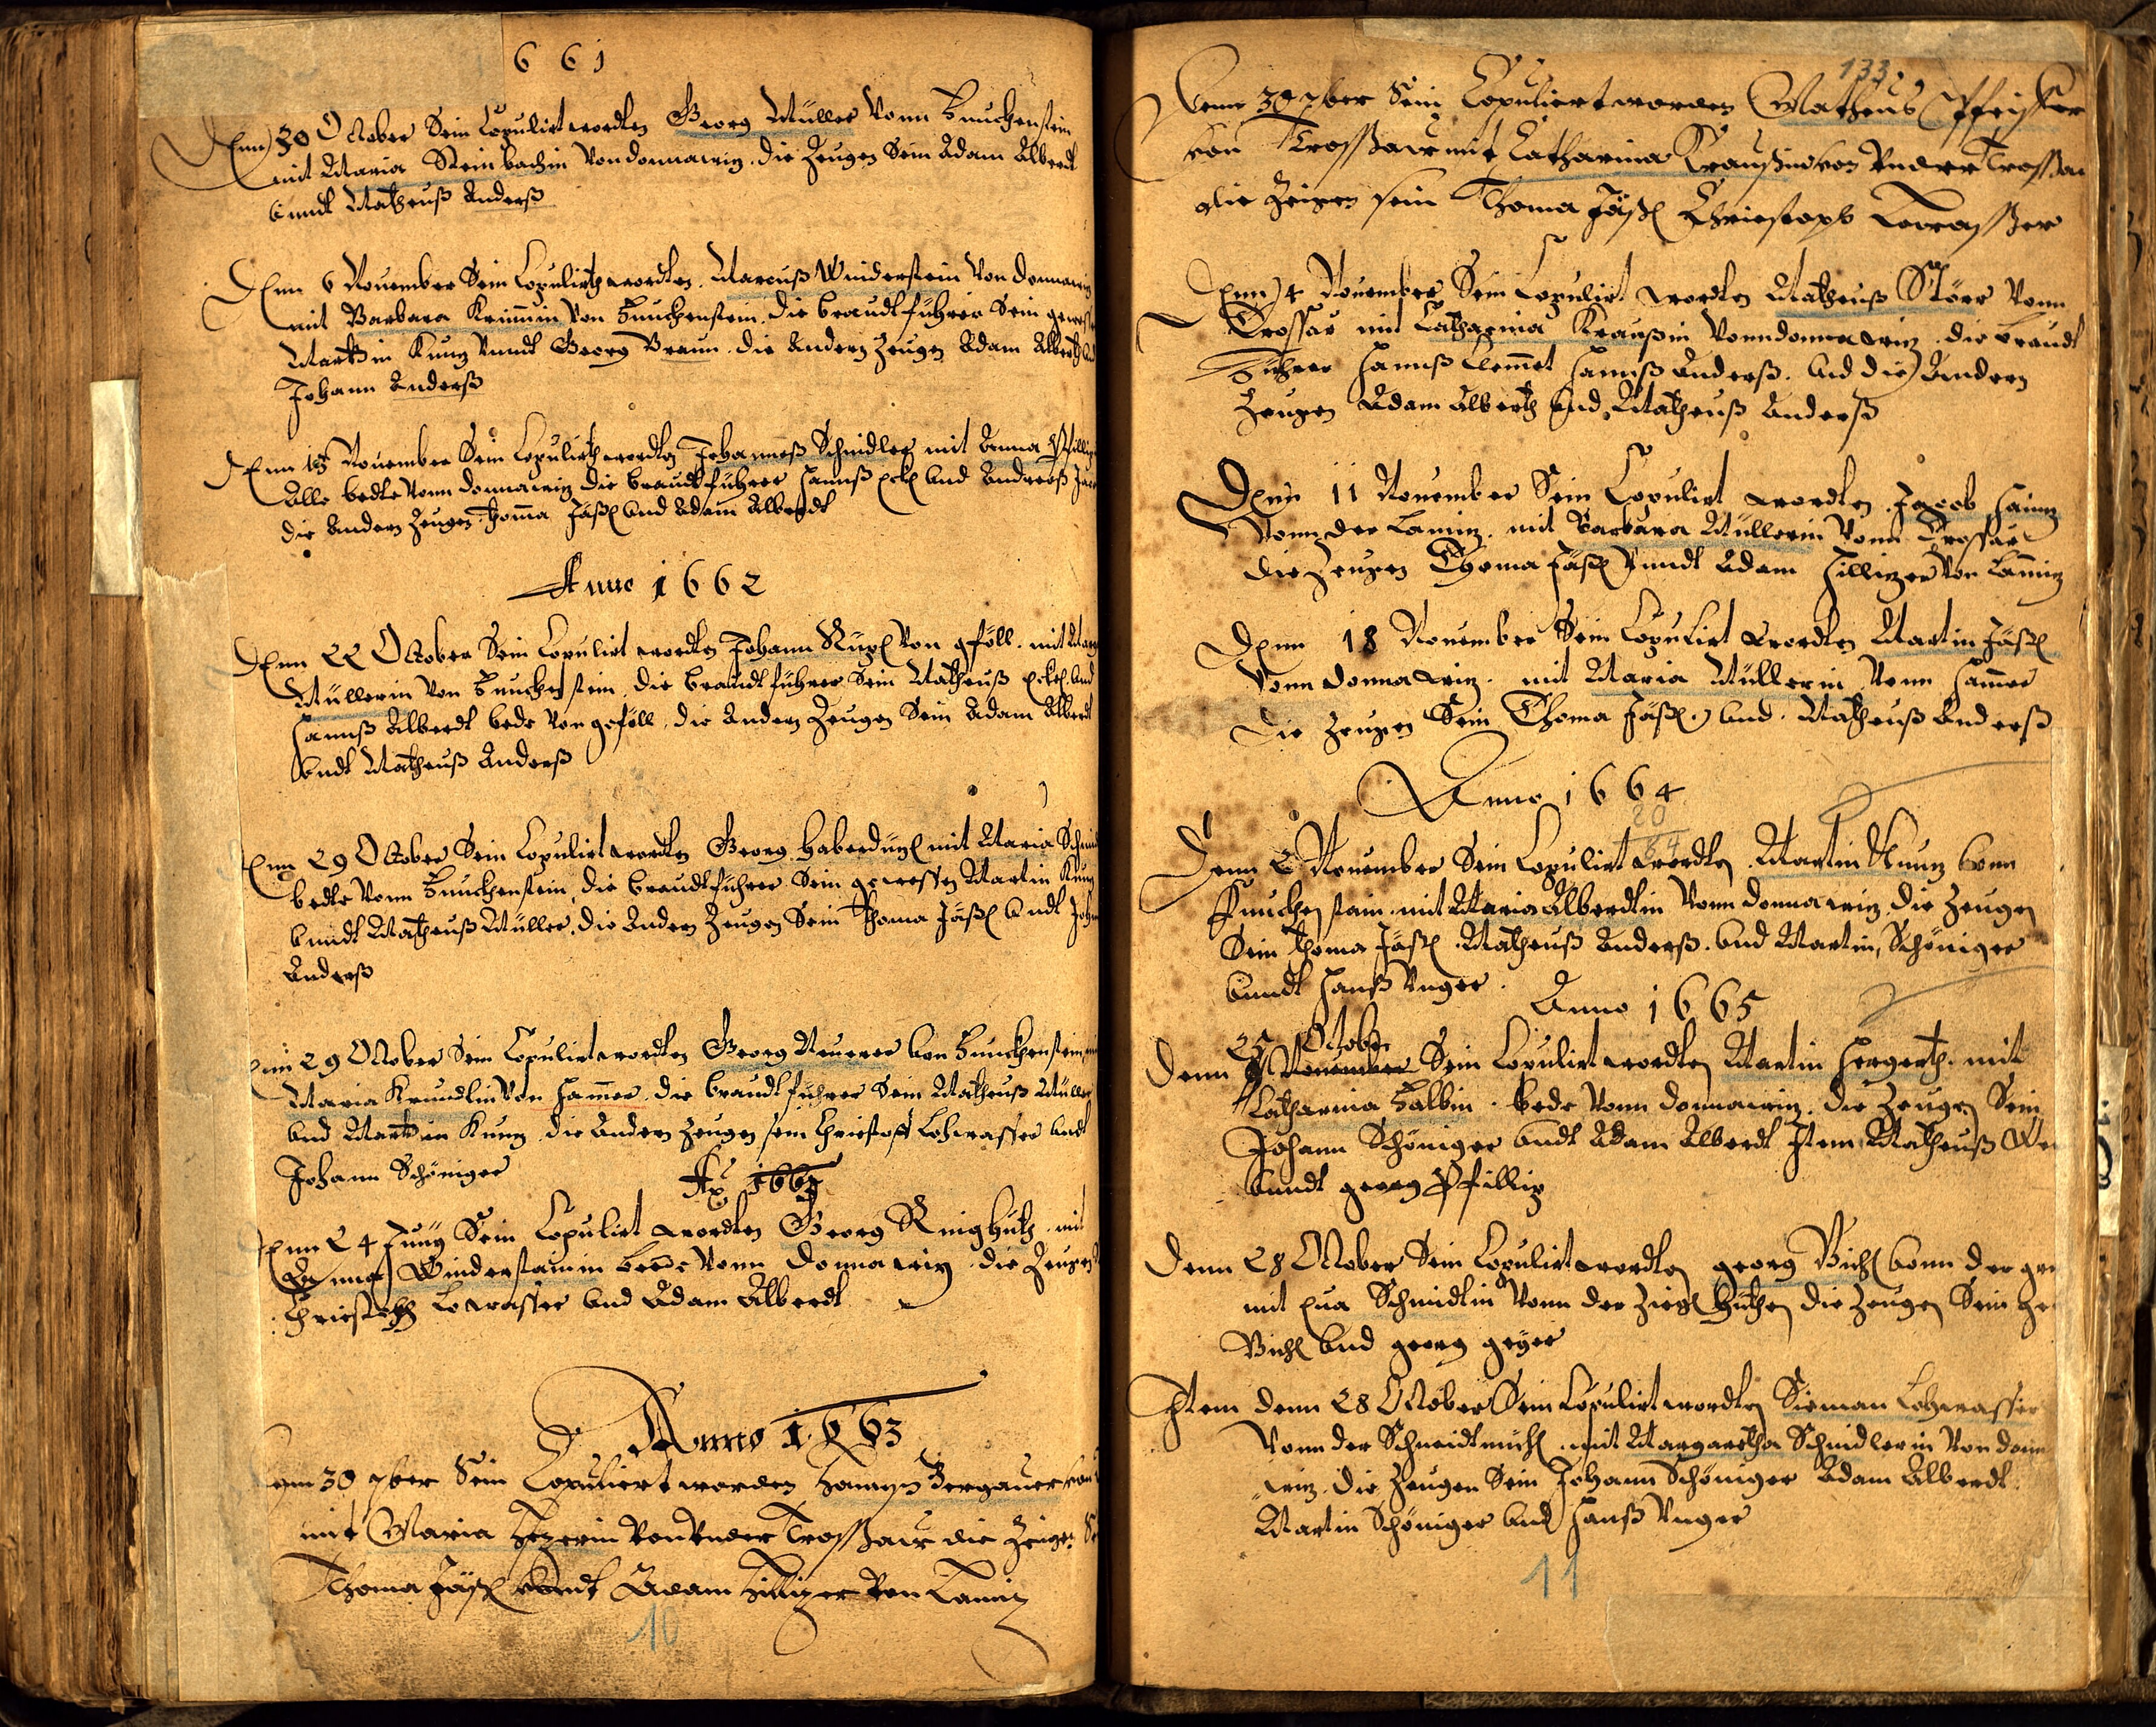 661
Denn 30 October Sein Copulirt wordten Georg Müller Vonn Funckenstein
mit Maria Steinbachin Von donnawitz. die Zeugen Sein Adam Alberdt
Vnndt Matheuß Anderß
Denn 6 Nouember Sein Copulirth wordten. Marcuß Winderstein Von donnawitz
mit Barbara Krimmin Von Funckenstein. die braudtführer Sein
Martin Kunz Vnndt Georg Braun. die Andern Zeugen Adam Alberth
Johann Anderß
Denn 13 Nouember Sein Copulirth wordten Johanneß Schmidler mit Anna
Alle bedte Vonn donnawitz die braudtführer Hannß vnd Andreaß
die Andern Zeugen Thoma Jäßl vnd Adam Alberdt
Anno 1662
Denn 22 October Sein Copulirt wordten Johann Von gföll. mit
Müllerin Von Funckenstein. die braudtführer Sein Matheuß vnd
Hannß Alberdt bede Von geföll. die Andern Zeugen Sein Adam Alberdt
vndt Matheuß Anderß
Denn 29 October Sein Copulirt wordten Georg Haberdizl mit Maria
bedte Vonn Funckenstein, die braudtführer Sein gewessen Martin Kunz
Vnndt Matheuß Müller. die Andern Zeugen Sein Thoma Jäßl vndt
Anderß
Denn 29 October Sein Copulirt wordten Georg Neuerer von Funckenstein
Maria Von Hammer. die braudtführer Sein Matheuß Müller
vnd Martin Kunz die Andern Zeugen sein Christoff Lohwasser vndt
Johann Schöniger
Ao 1663
Denn 24 Juny Sein Copulirt wordten Georg mit
Anna Winderstainin bede Vonn donnawitz. die Zeugen
Christoph Lowasser vnd Adam Alberdt
Anno 1663
30 7ber Sein Copuliert worden Bergauer
mit Maria von vnder Trossaur die Zeigen
Thoma Jäßl vndt Adam Hillizer von Lamiz
10
133
Denn 30 7ber Sein Copuliert worden Matheus
von Trossaur mit Catharina Kraußin von vnder Trossau
die Zeigen sein Thoma Jäßl Christoph Lowasser
Denn 4 Nouember Sein Copulirt wordten Matheuß Störr Vonn
Trossau mit Catharina Kraußin Vonn donnawitz. die braudt
Führer Hannß Clemet Hannß Anderß. vnd die Andern
Zeugen Adam Alberth vnd Matheuß Anderß
Denn 11 Nouember Sein Copulirt wordten Jacob Heinz
Vonn der Lamiz. mit Barbara Müllerin Vonn Trossau
die Zeugen Thoma Jäßl Vnndt Adam Hillizer Von Lamiz
Denn 18 Nouember Sein Copulirt wordten Martin Jäßl
Vonn donnawitz. mit Maria Müllerin Vonn Hammer
die Zeugen Sein Thoma Jäßl. vnd. Matheuß Anderß
Anno 1664
20
64
Denn 2 Nouember Sein Copulirt wordten Martin Kunz vonn
Funckenstain mit Maria Alberdtin Vonn donnawitz. die Zeugen
Sein Thoma Jäßl. Matheuß Anderß. vnd Martin Schöniger
Vnndt Hanß Vnger.
Anno 1665
25 Octobr
Denn Nouember Sein Copulirt wordten Martin Hergerth. mit
Catharina Kalbin. bede Vonn donnawitz. die Zeugen Sein
Johann Schöniger vndt Adam Alberdt Item Matheuß
Vnndt georg Pfilliz
Denn 28 October Sein Copulirt wordten georg Vichl vonn der
mit Eua Schmidtin Vonn der Ziegl Hütten die Zeugen Sein
Vichl vnd georg geyer
Item denn 28 October Sein Copulirt wordten Simon Lohwasser
Vonn der Schneidtmühl. mit Margaretha Schmidlerin Von donn
witz. die Zeugen Sein Johann Schöniger Adam Alberdt.
Martin Schöniger vnd Hanß Vnger
11